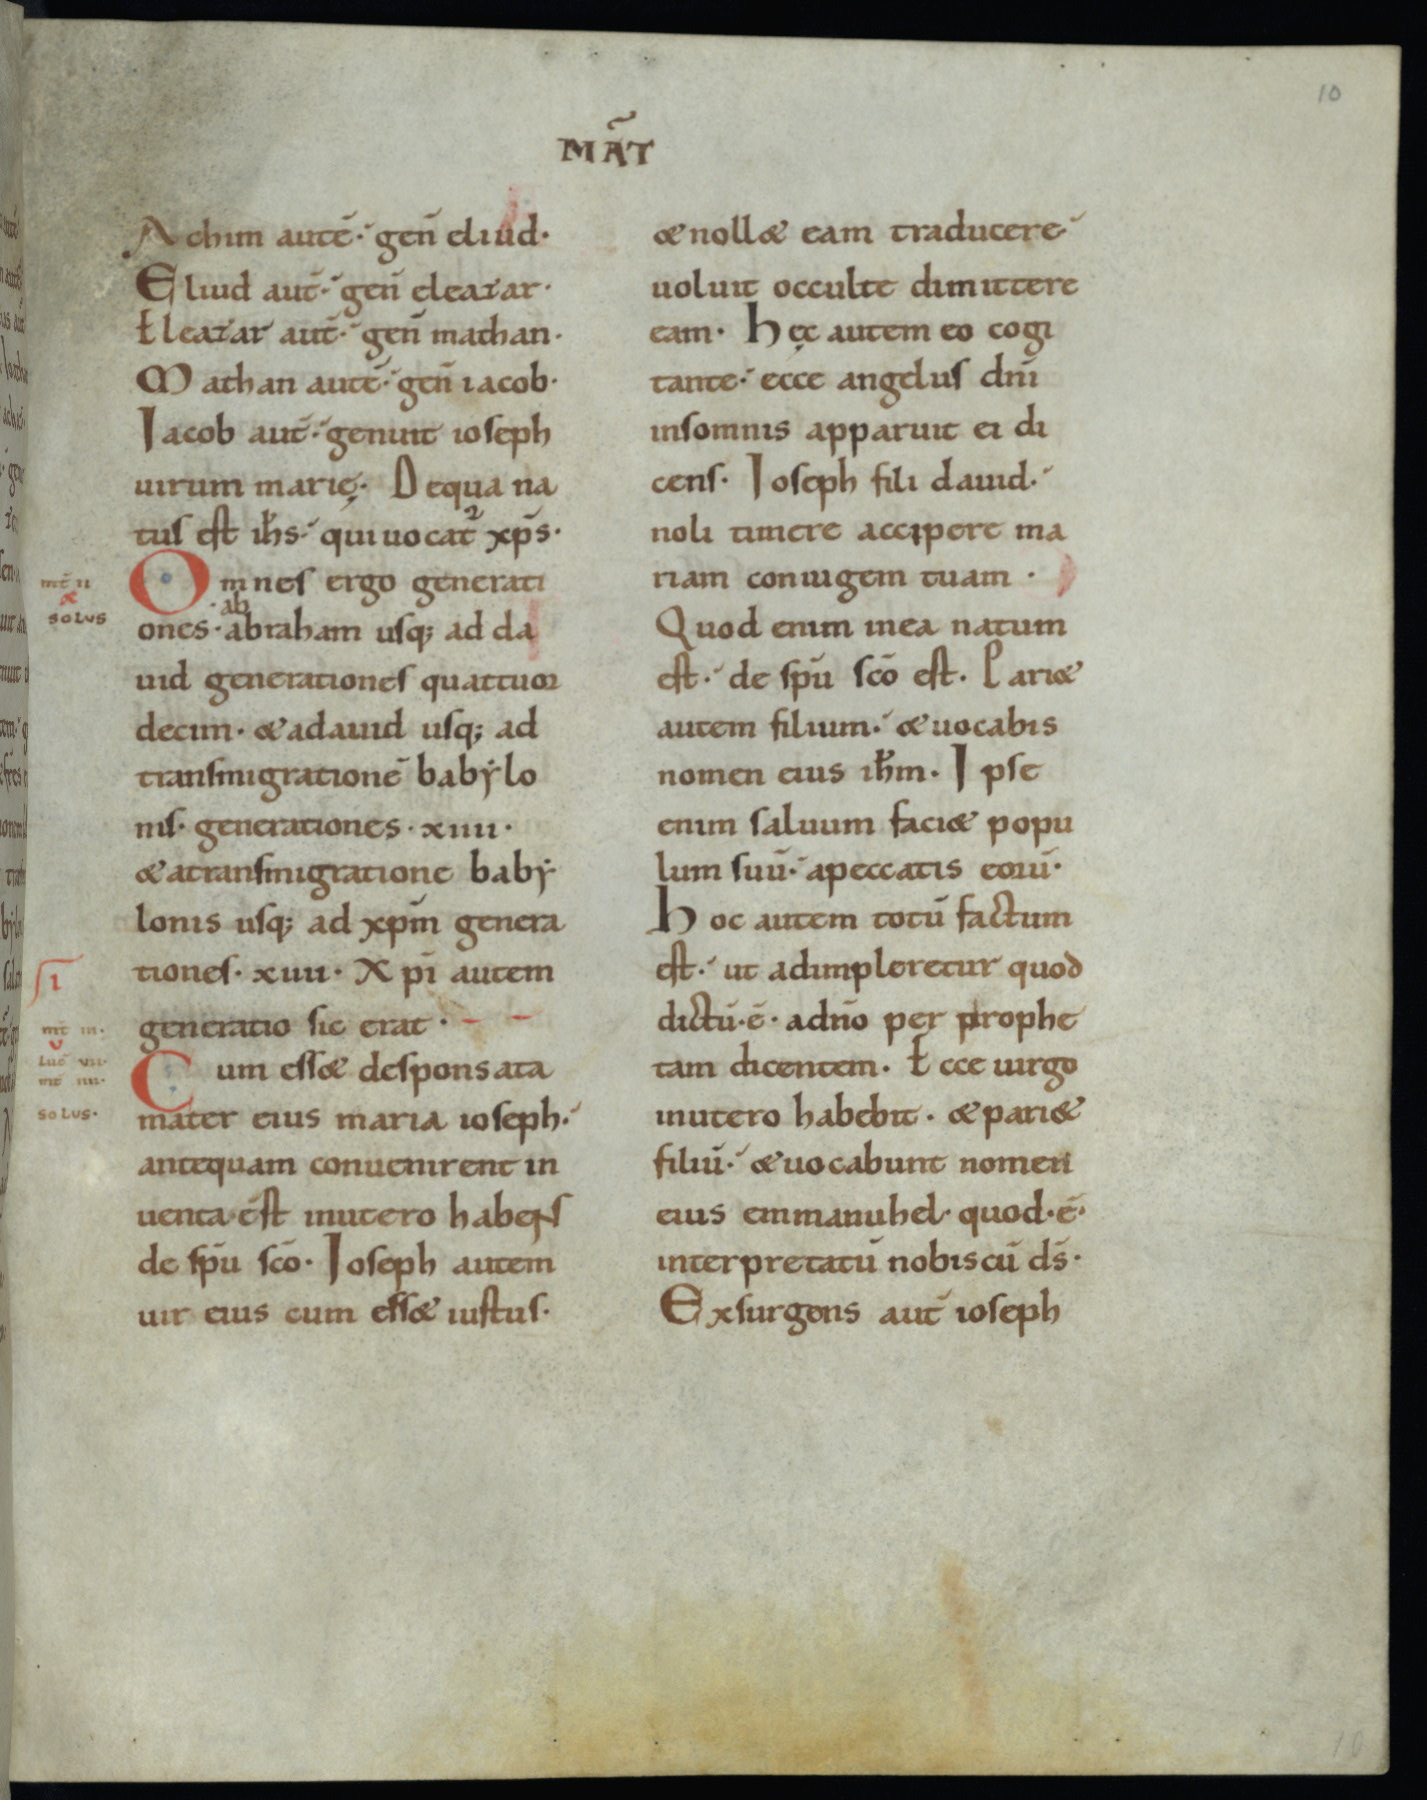 10
MAT̄
Achim autē· gen̄ eliud·
Eliud aut̄· gen̄ eleazar·
Eleazar aut̄· gen̄ mathan·
Mathan autē· gen̄ iacob·
Iacob aut̄· genuit ioseph
uirum marię· De qua na
tus est ih̄s· qui uocat᷑ xp̄s·
mt̄ ii
x
solus
Omnes ergo generati
ones· ab abraham usq; ad da
uid generationes quattuor
decim· & adauid usq; ad
transmigrationē babẏlo
nis· generationes· xiiii·
& atransmigratione babẏ
lonis usq; ad xp̄m genera
tiones· xiiii· Xp̄i autem
generatio sic erat·
i
mt̄ iii·
v
luc̄ vii·
mt̄ iiii·
solus·
Cum ess& desponsata
mater eius maria ioseph·
antequam conuenirent in
uenta· est inutero habens
de sp̄u sc̄o· Ioseph autem
uir eius cum ess& iustus·
& noll& eam traducere
uoluit occulte dimittere
eam· Hęc autem eo cogi
tante· ecce angelus dn̄i
insomnis apparuit ei di
cens· Ioseph fili dauid·
noli timere accipere ma
riam coniugem tuam·
Quod enim inea natum
est· de sp̄u sc̄o est. Pari&
autem filium· & uocabis
nomen eius ih̄m· Ipse
enim saluum faci& popu
lum suū· apeccatis eorū·
Hoc autem totū factum
est· ut adimpleretur quod
dictū·ē· adn̄o per prophe
tam dicentem· Ecce uirgo
inutero habebit· & pari&
filiū· & uocabunt nomen
eius emmanuhel· quod·ē·
interpretatū nobiscū ds̄·
Exsurgens aut̄ ioseph
10